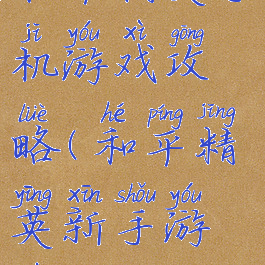 jī yóu xì gōng
机游戏攻
lüè hé píng jīng
略(和平精
yīng xīn shǒu yóu
英新手游